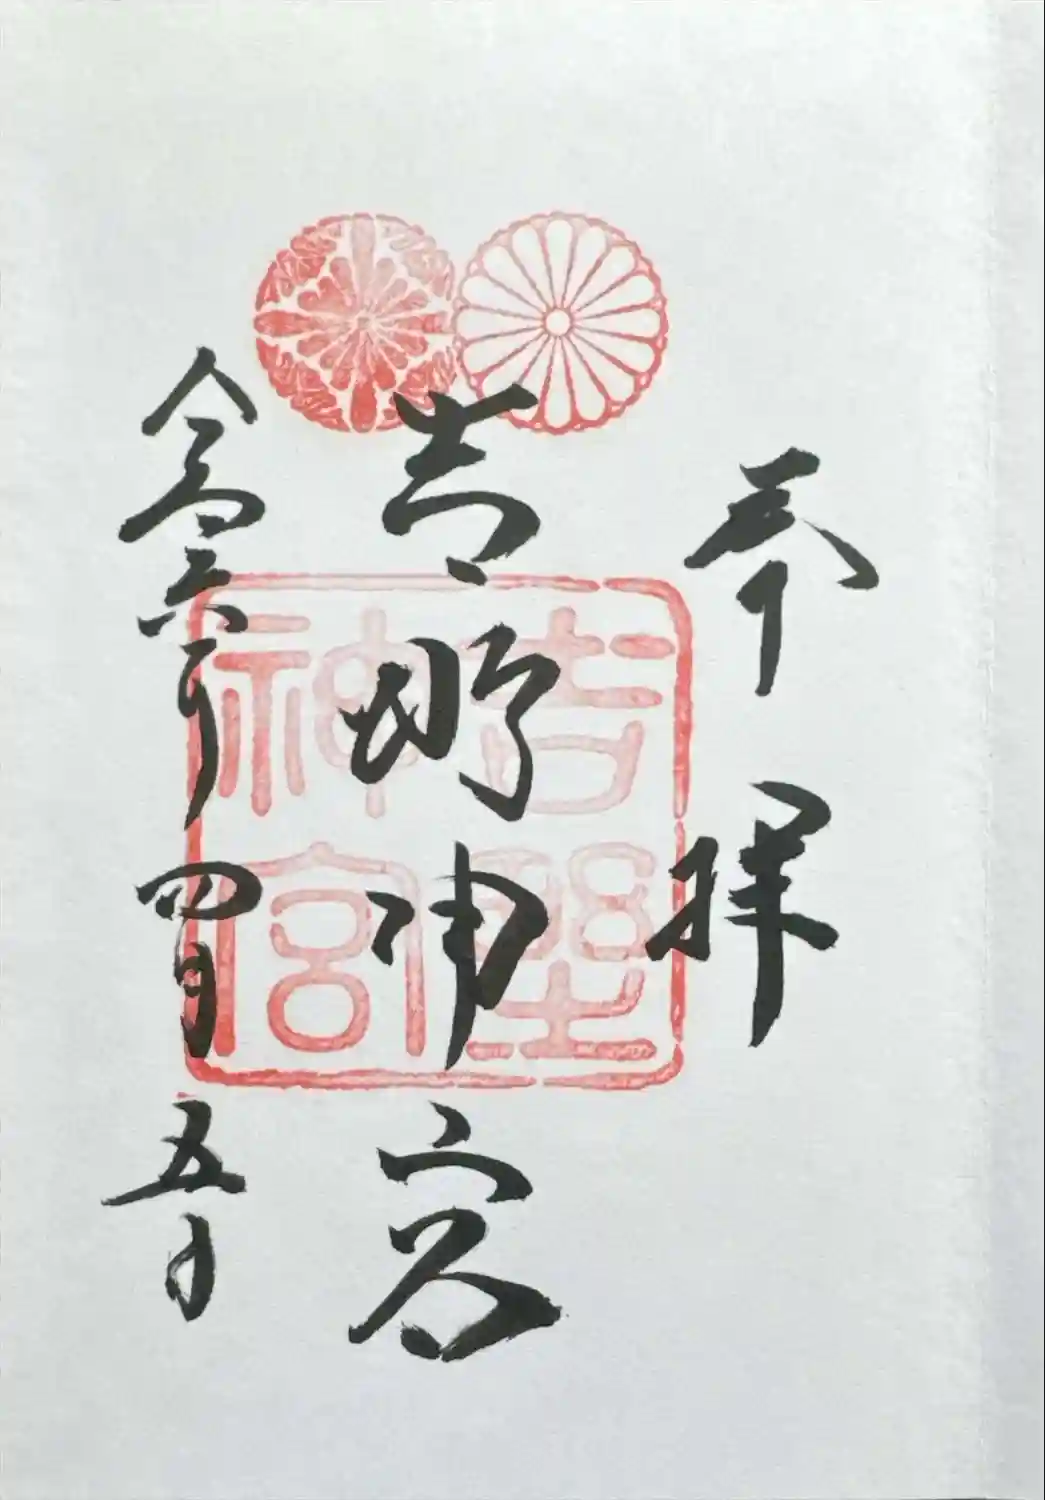 奉拝
吉野神宮
令和六年四月五日
吉野
神宮